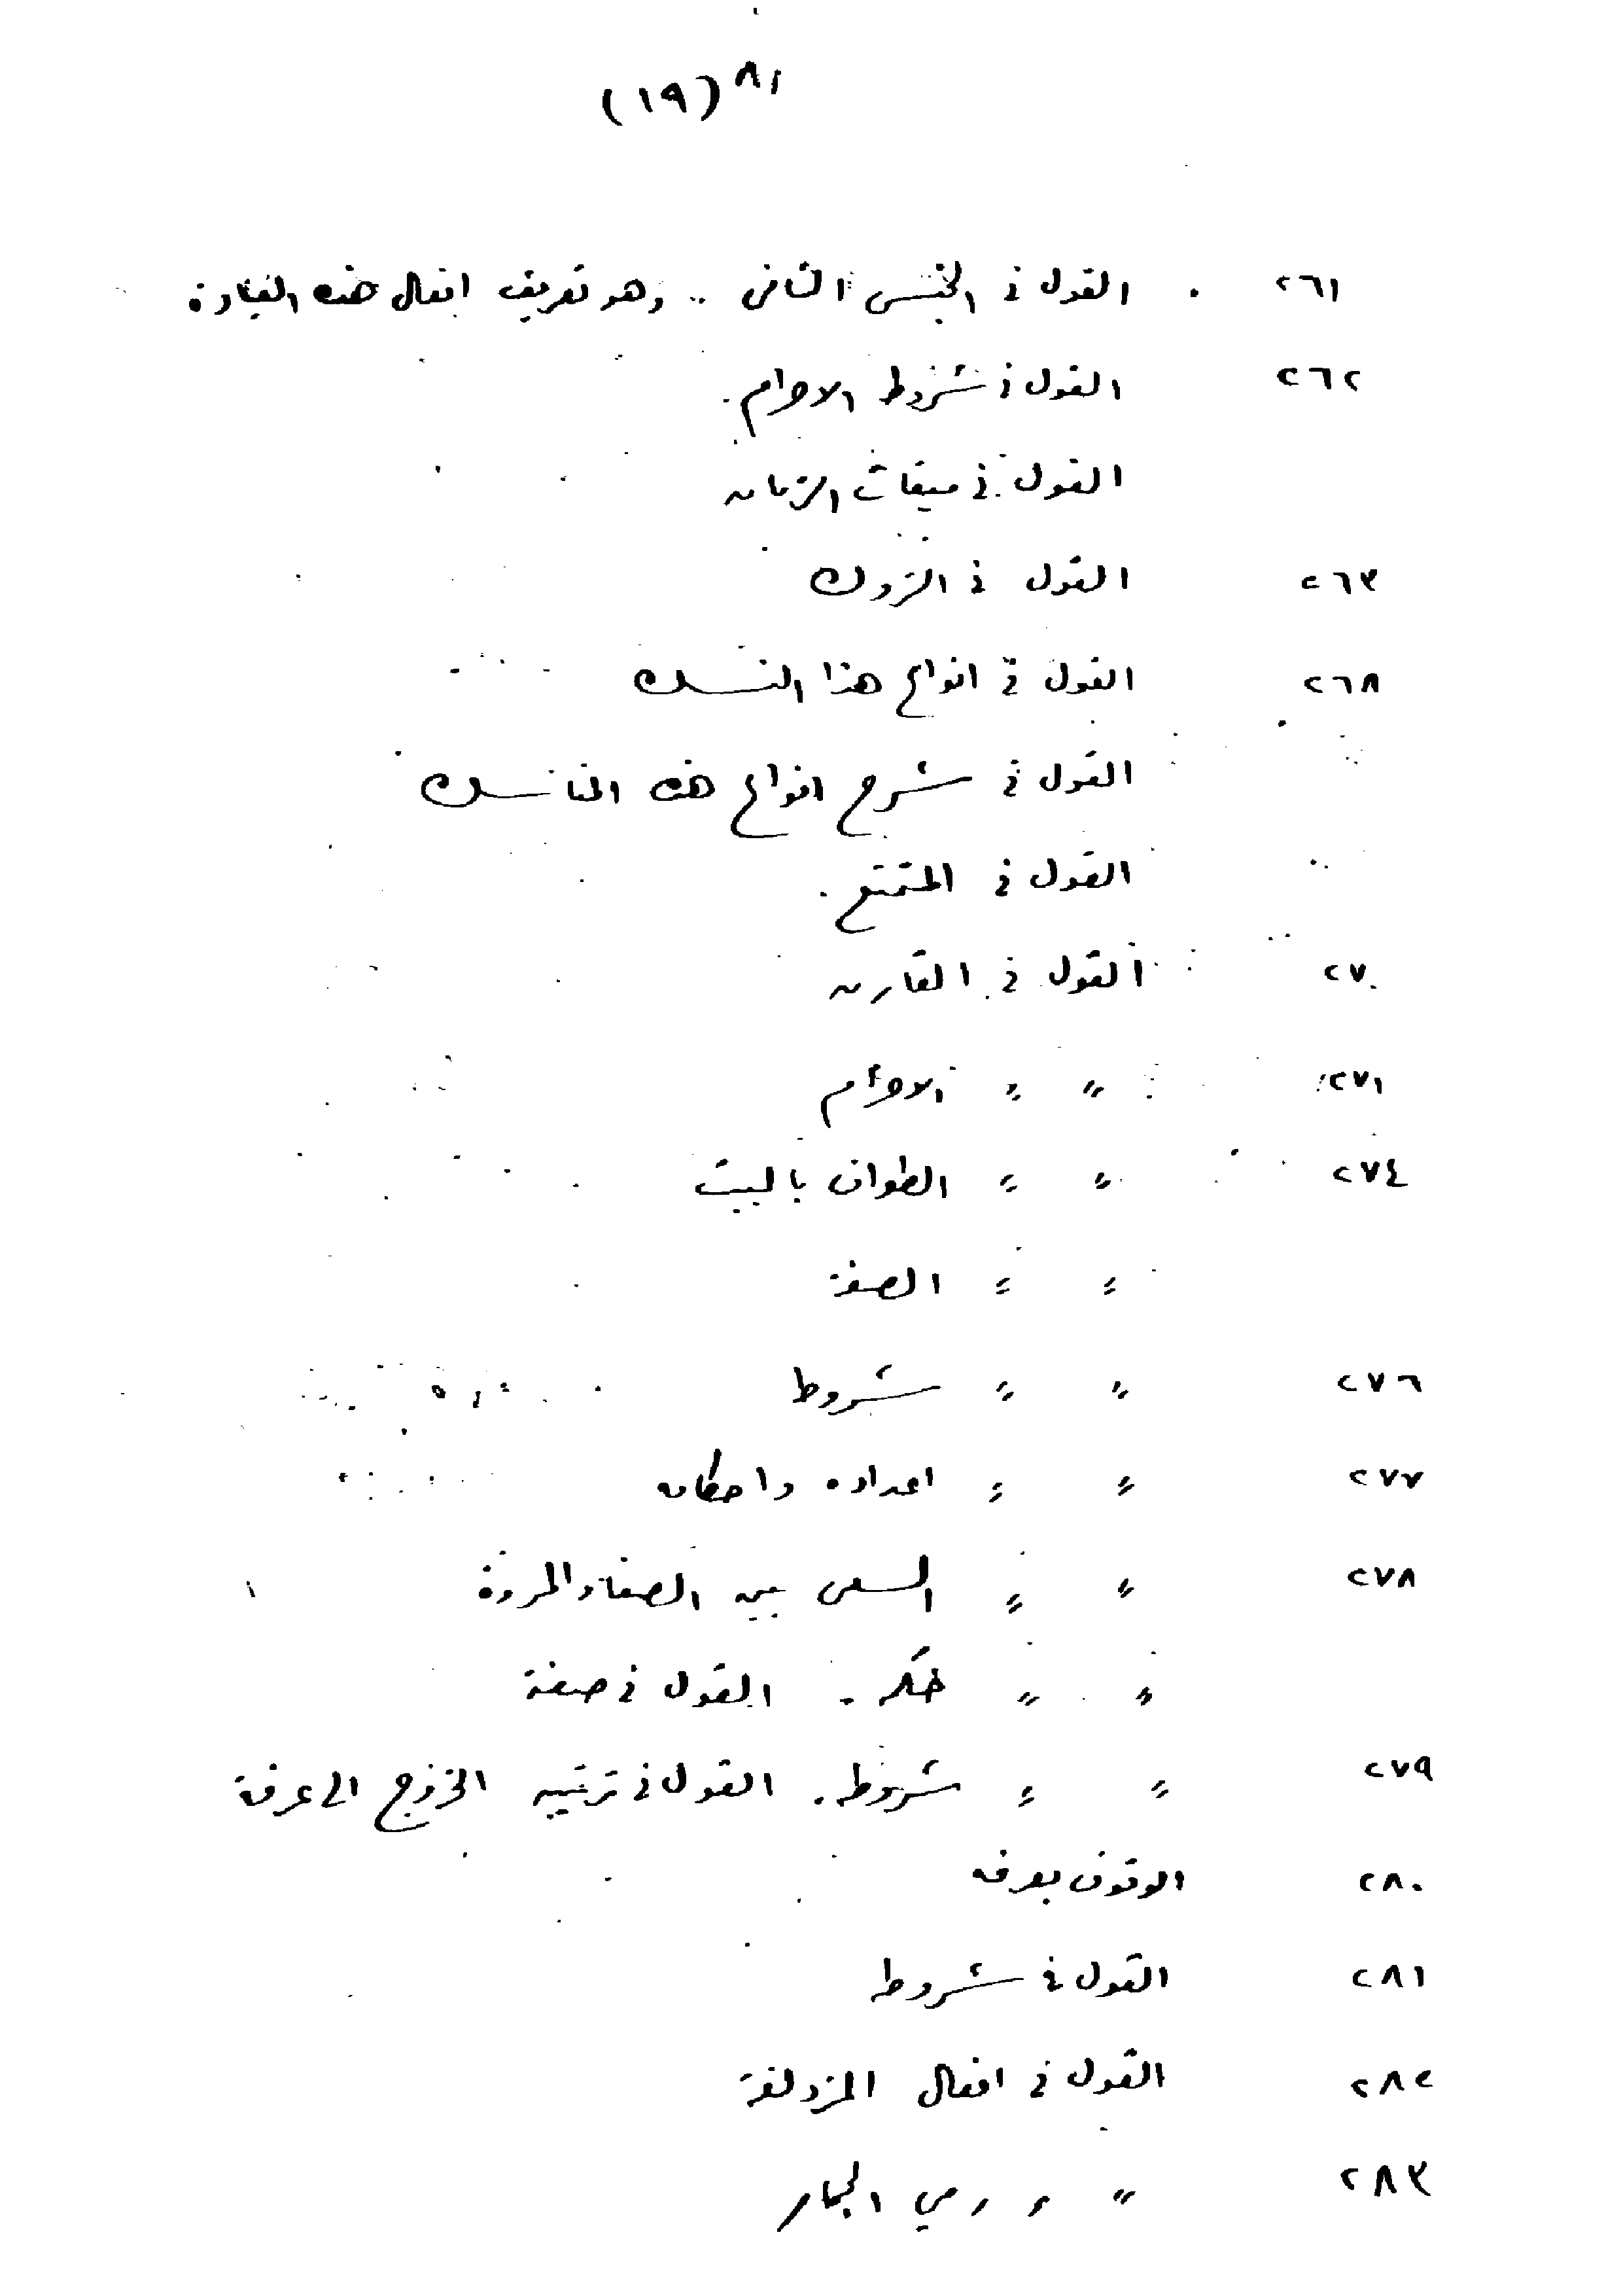 (١٩) ٨١
٢٦١ . القول فى الجنس الثانى .. وهو تعريف افعال هذه العبادة
٢٦٢ القول فى شروط الاحرام .
القول فى ميقات الزمان
٢٦٣ القول فى التروك
٢٦٨ القول فى انواع هذا النسك
القول فى شرح انواع هذه المناسك
القول فى المتمتع .
٢٧٠ القول فى القارن
٢٧١ " " الاحرام
٢٧٤ " " الطواف بالبيت
" " الصفة
٢٧٦ " " شروط
٢٧٧ " " اعداده واحكامه
٢٧٨ " " السعى بين الصفا والمروة
" " حكمه . القول فى صفة
٢٧٩ " " شروطه . القول فى ترتيبه الخروج الى عرفة
٢٨٠ الوقوف بعرفه
٢٨١ القول فى شروطه
٢٨٢ القول فى افعال المزدلفة
٢٨٣ " " رمي الجمار